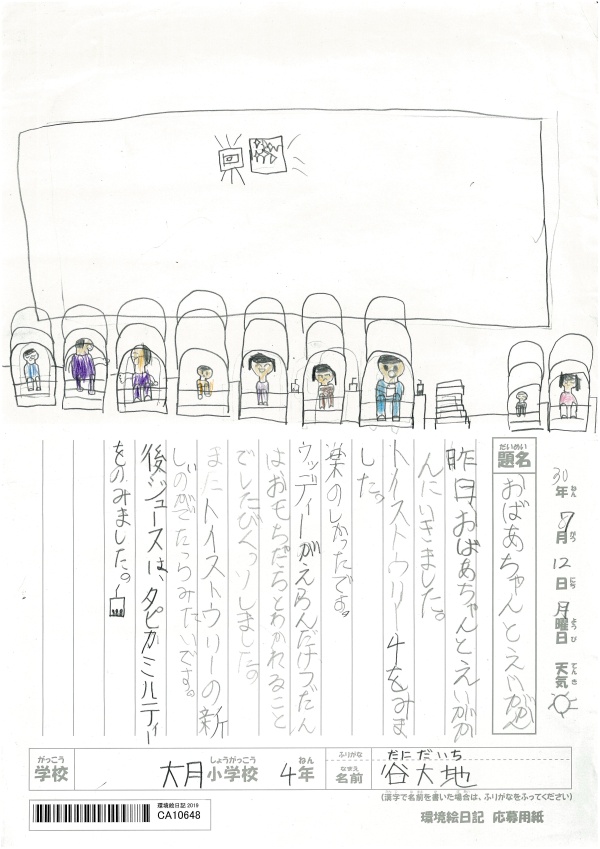 30年ねん7月がつ12日にち月曜日ようび 天気てんき
題名だいめい おばあちゃんとえいがかん
昨日、おばあちゃんとえいがか
んにいきました。
トイストウリー4をみま
した。
楽のしかったです。
ウッディーがえらんだけつだん
はおもちだちとわかれること
でしたびくっソしました。
またトイストウリーの新
しいのがでたらみたいです。
後ジュースは、タピカミルティー
をのみました。
学校がっこう 大月小学校しょうがっこう 4年ねん 名前なまえ ふりがな だにだいち 谷大地
(漢字で名前を書いた場合は、ふりがなをふってください)
環境絵日記 2019
CA10648
環境絵日記 応募用紙